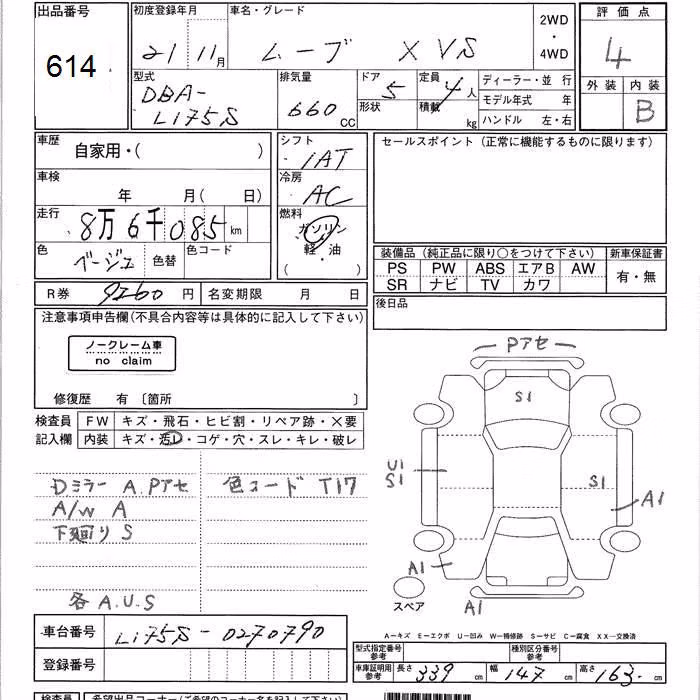 出品番号 初度登録年月 車名・グレード 2WD 評価点
614 21 11月 ムーブ X VS ・ 4
4WD
型式 排気量 ドア 5 定員 4人 ディーラー・並 行 外装 内装
DBA- 660 形状 積載 モデル年式 年 B
L175S CC kg ハンドル 左・右
車歴 シフト セールスポイント(正常に機能するものに限ります)
自家用・( ) IAT
車検 冷房
年 月(日) AC
走行 8万6千085km 燃料
ガソリン
色 ベージュ 色替 色コード 軽・油 装備品(純正品に限り○をつけて下さい) 新車保証書
( ) PS PW ABS エアB AW 有・無
R券 9260円 名変期限 月 日 SR ナビ TV カワ
後日品
注意事項申告欄(不具合内容等は具体的に記入して下さい)
ノークレーム車
no claim
Pアセ
S1
修復歴 有〔箇所 〕
検査員 FW キズ・飛石・ヒビ割・リペア跡・×要
記入欄 内装 キズ・汚れ・コゲ・穴・スレ・キレ・破レ
U1
S1 S1
Dミラー A.Pアセ 色コード T17
A1
A/W A
下廻り S
A1
各 A.U.S
スペア A1
車台番号 L175S-0270790
A-キズ E-エクボ U-凹み W-補修跡 S-サビ C-腐食 XX-交換済
登録番号 型式指定番号 参考 種別区分番号 参考
車庫証明用 参考 長さ 339cm 幅 147cm 高さ 163cm
検査員 希望出品コーナー